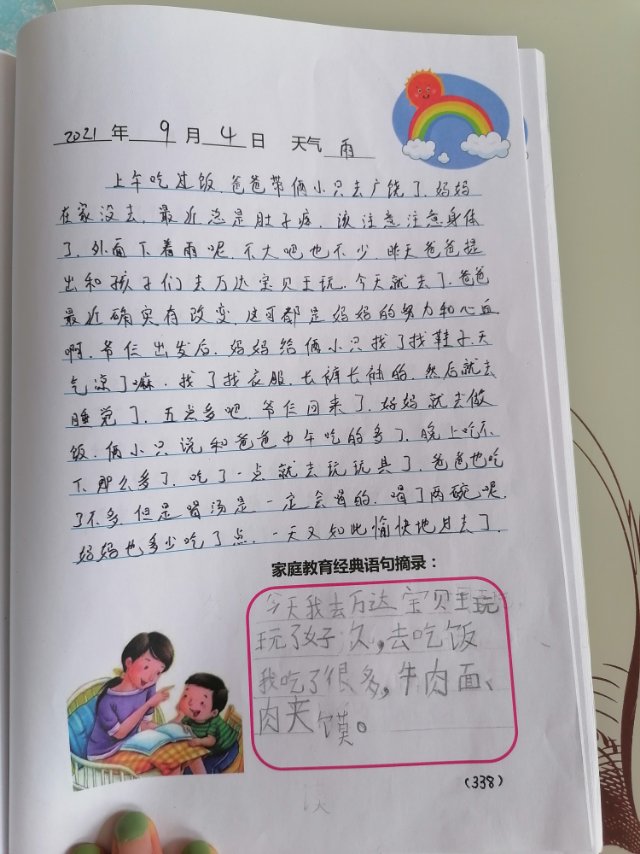 2021 年 9 月 4 日 天气 雨
上午吃过饭.爸爸带俩小只去广饶了.妈妈
在家没去.最近总是肚子疼.该注意注意身体
了.外面下着雨呢.不大吧也不少.昨天爸爸提
出和孩子们去万达宝贝王玩.今天就去了.爸爸
最近确实有改变.这可都是妈妈的努力和心血
啊.爷仨出发后.妈妈给俩小只找了找鞋子.天
气凉了嘛.找了找衣服.长裤长袖的.然后就去
睡觉了.五点多吧.爷仨回来了.妈妈就去做
饭.俩小只说和爸爸中午吃的多了.晚上吃不
下那么多了.吃了一点就去玩玩具了.爸爸也吃
了不多.但是喝汤是一定会喝的.喝了两碗呢.
妈妈也多少吃了点.一天又如此愉快地过去了.
家庭教育经典语句摘录：
今天我去万达宝贝王玩
玩了好久,去吃饭
我吃了很多,牛肉面、
肉夹馍。
(338)